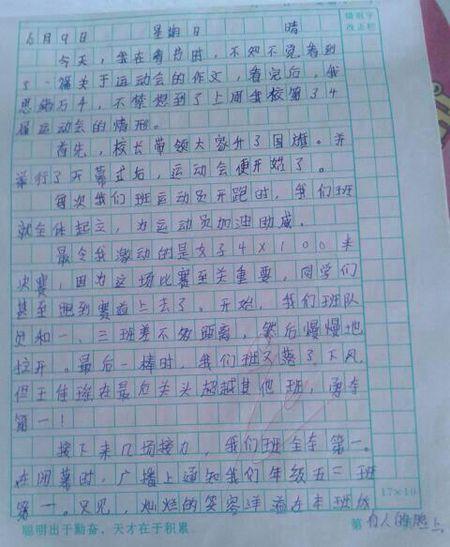 错别字
改正栏
6月9日 星期日 晴
今天，我在看书时，不知不觉看到
了一篇关于运动会的作文，看完后，我
思绪万千，不禁想到了上周我校第34
届运动会的情形。
首先，校长带领大家升了国旗。并
举行了开幕式后，运动会便开始了。
每次我们班运动员开跑时，我们班
就全体起立，为运动员加油助威。
最令我激动的是女子4×100米
决赛，因为这场比赛至关重要，同学们
甚至跑到赛道上去了。开始，我们班队
员和一、三班差不多距离，然后慢慢地
拉开。最后一棒时，我们班又落了下风
但王佳瑶在最后关头超越其他班，勇夺
第一！
接下来几场接力，我们班全夺第一。
在闭幕时，广播上通知我们年级五三班
第一。只见，灿烂的笑容洋溢在本班级
17×16
聪明出于勤奋，天才在于积累
第 有人的脸上